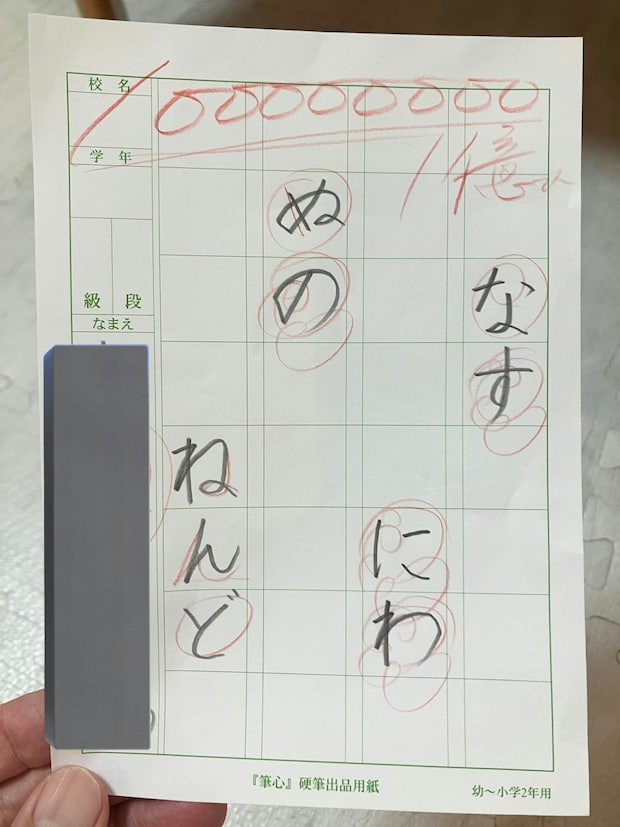 100000000
1億
なす
にわ
ぬの
ねんど
校名
学年
級 段
なまえ
『筆心』硬筆出品用紙
幼～小学2年用